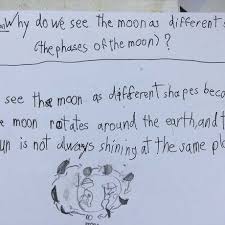 Why do we see the moon as different
(the phases of the moon)?
see the moon as different shapes beca
moon rotates around the earth, and t
un is not always shining at the same pl